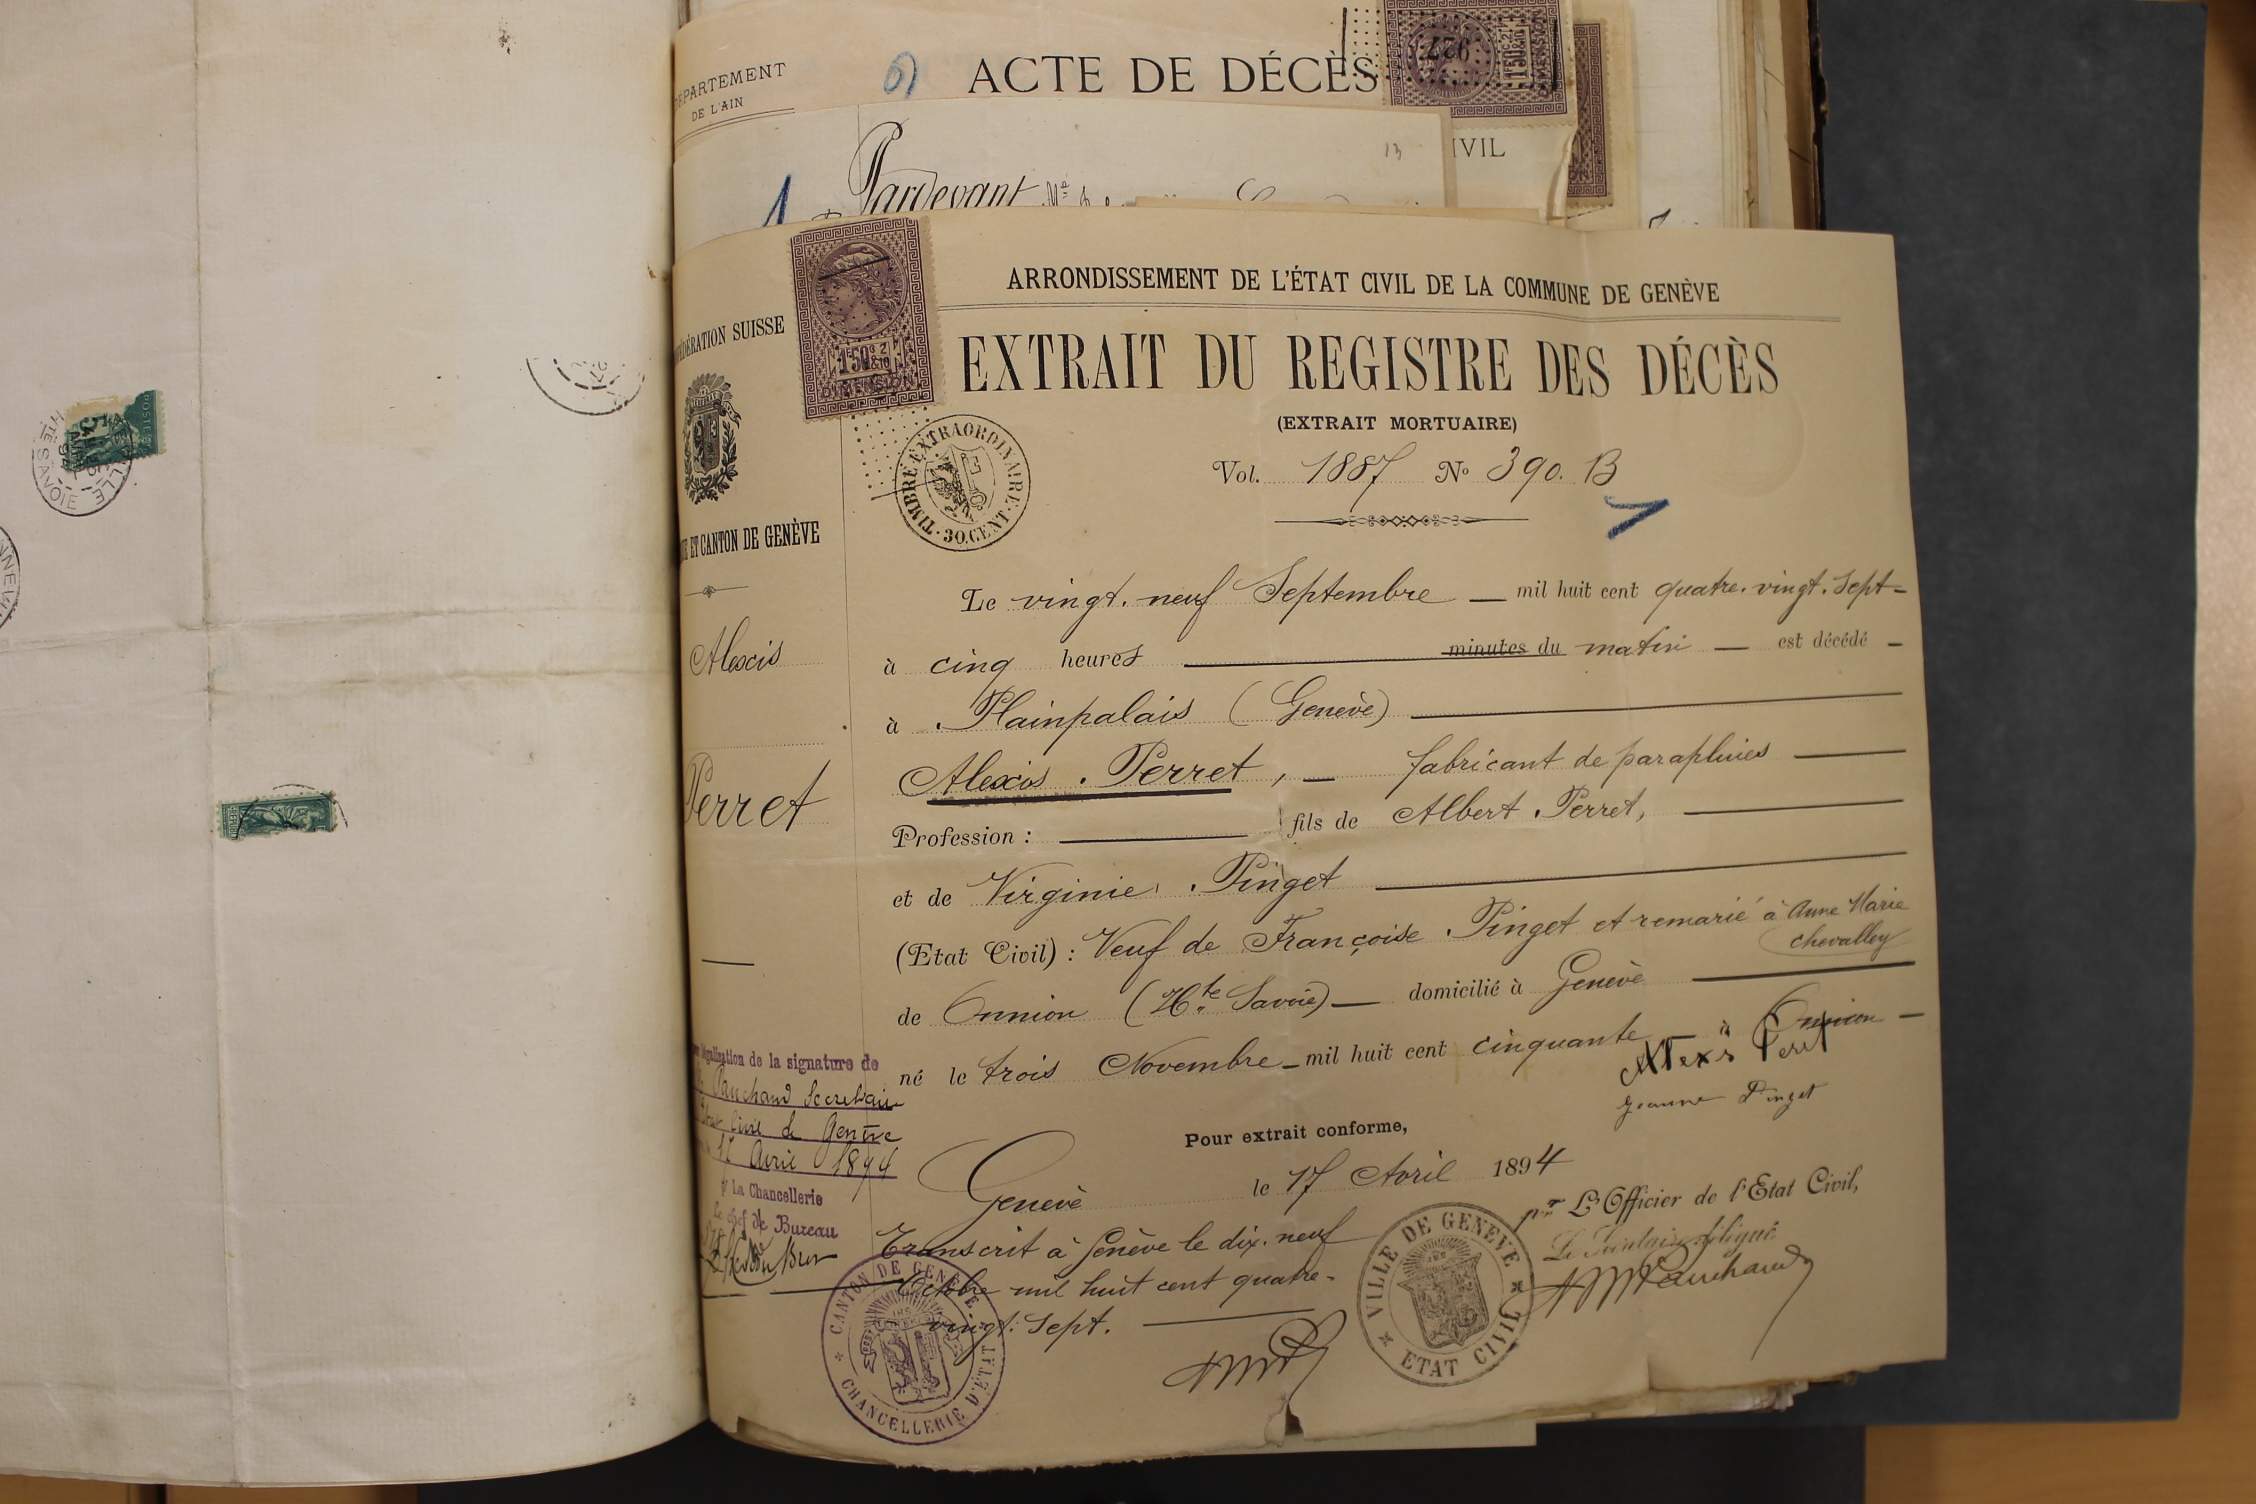 DÉPARTEMENT
DE L'AIN
6)
ACTE DE DÉCÈS
927
1F50c 2/10
DIMENSION
IVIL
13
1
Pardevant Me
ARRONDISSEMENT DE L'ÉTAT CIVIL DE LA COMMUNE DE GENÈVE
ÉDÉRATION SUISSE
1F50c 2/10
DIMENSION
EXTRAIT DU REGISTRE DES DÉCÈS
(EXTRAIT MORTUAIRE)
TIMBRE EXTRAORDINAIRE · 30. CENT.
Vol. 1887 No 390. B
ET CANTON DE GENÈVE
Le vingt. neuf Septembre — mil huit cent quatre. vingt. Sept -
Alexis
à cinq heures — minutes du matin — est décédé -
à Plainpalais (Genève)
Alexis Perret, — fabricant de parapluies
Perret
Profession : — fils de Albert Perret,
et de Virginie Pinget
(Etat Civil) : Veuf de Françoise Pinget et remarié à Anne Marie
chevalley
de Onnion (Hte Savoie) — domicilié à Genève
né le trois Novembre - mil huit cent cinquante — à Onnion -
Alexis Peret
Jeanne Pinget
légalisation de la signature de
Pauchard Secrétaire
Civil de Genève
17 Avril 1894
pr La Chancellerie
Le chef de Bureau
Pour extrait conforme,
Genève le 17 Avril 1894
pr L'Officier de l'Etat Civil,
Le Secrétaire délégué
Transcrit à Genève le dix. neuf
Octobre mil huit cent quatre-
vingt: Sept.
CANTON DE GENÈVE
CHANCELLERIE D'ÉTAT
VILLE DE GENÈVE
ETAT CIVIL
POSTE
HTE SAVOIE